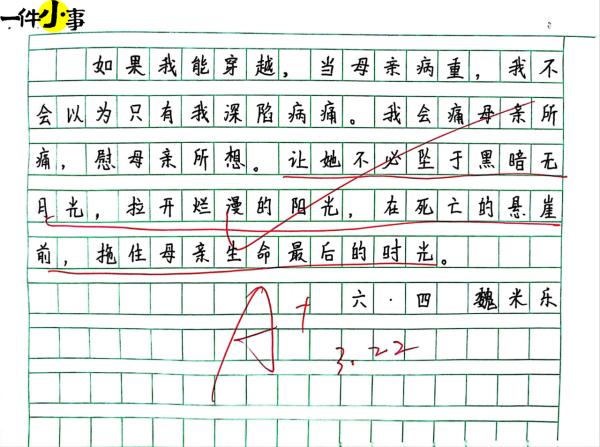 一件小事
如果我能穿越，当母亲病重，我不
会以为只有我深陷病痛。我会痛母亲所
痛，慰母亲所想。让她不必坠于黑暗无
月光，拉开烂漫的阳光，在死亡的悬崖
前，拖住母亲生命最后的时光。
六·四 魏米乐
A+
3.22